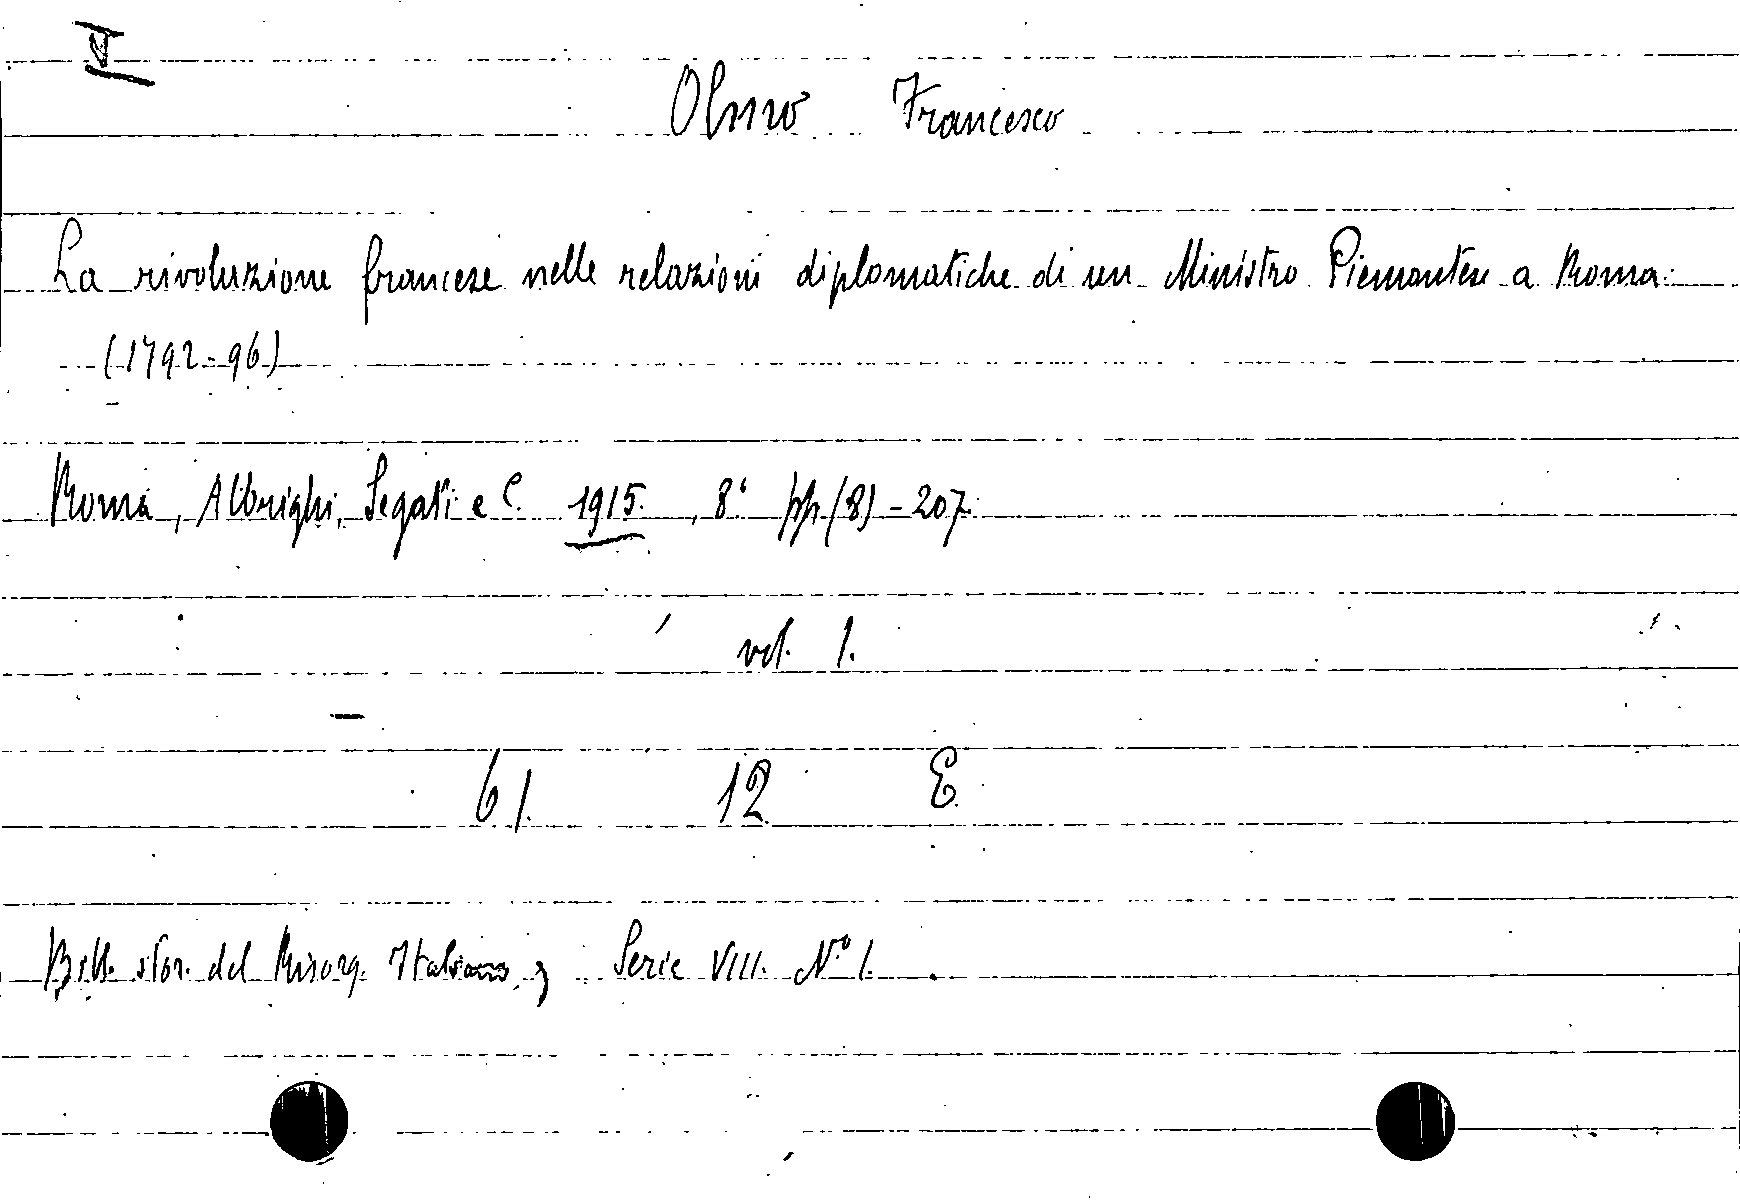 V
Olmo Francesco
La rivoluzione francese nelle relazioni diplomatiche di un Ministro Piemontese a Roma.
(1792-96)
Roma, Albrighi, Segati e C. 1915. , 8° pp. (8) - 207.
vol. 1.
61. 12 E
Bibl. stor. del Risorg. Italiano, Serie VIII. N° 1.